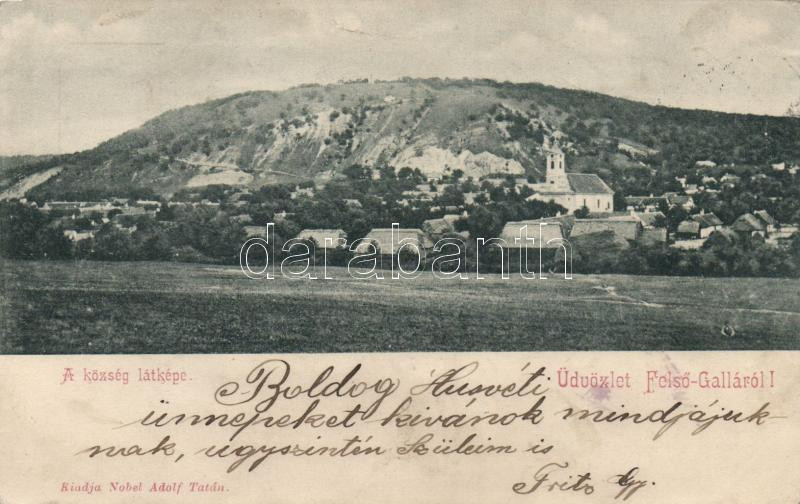 darabanth
A község látképe.
Üdvözlet Felső-Galláról!
Boldog Husvéti
ünnepeket kivánok mindjájuk-
nak, ugyszintén Szüleim is
Fritz Gy.
Kiadja Nobel Adolf Tatán.